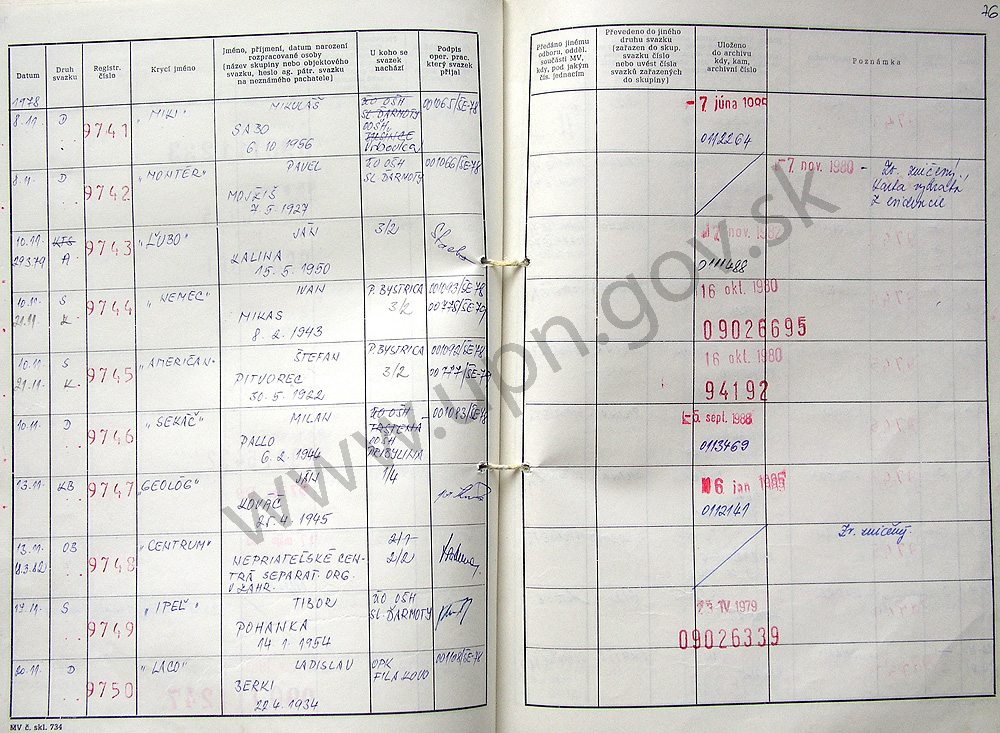 76
Datum
Druh svazku
Registr. číslo
Krycí jméno
Jméno, příjmení, datum narození
rozpracované osoby
(název skupiny nebo objektového
svazku, heslo ag. pátr. svazku
na neznámého pachatele)
U koho se
svazek
nachází
Podpis
oper. prac.
který svazek
přijal
Předáno jinému
odboru, odděl.
součásti MV,
kdy, pod jakým
čís. jednacím
Převedeno do jiného
druhu svazku
(zařazen do skup.
svazku číslo
nebo uvést čísla
svazků zařazených
do skupiny)
Uloženo
do archivu
kdy, kam,
archivní číslo
Poznámka
1978
8.11. D 9741 "MIKI" MIKULÁŠ
SABO
6. 10 1956
OO OŠH
SL. ĎARMOTY
OOŠH
Vrbovica
001065/ŠE-78
- 7 júna
0112264
8.11. D 9742 "MONTÉR" PAVEL
MOJŽIŠ
7. 5. 1927
OO OŠH
SL ĎARMOTY
001066/ŠE-78
-7 nov. 1980 - Zv. zničený,
karta vybratá
z evidencie
10.11. KTS 9743 "ĽUBO" JÁN
29.3.79 A
KALINA
15. 5. 1950
3/2
nov. 1982
0111488
10.11. S 9744 "NEMEC" IVAN
21.11. K
MIKAS
8. 2. 1943
P. BYSTRICA
3/2
001093/ŠE-78
00778/ŠE-79
16 okt. 1980
09026695
10.11. S 9745 "AMERIČAN" ŠTEFAN
21.11. K
PITVOREC
30. 5. 1922
P. BYSTRICA
3/2
001092/ŠE-78
00777/ŠE-79
16 okt. 1980
94192
10.11. D 9746 "SEKÁČ" MILAN
PALLO
6. 2. 1944
OO OŠH
TRSTENÁ
OOŠH
PRIBYLINA
001083/ŠE-78
5. sept. 1988
0113469
13.11. KB 9747 "GEOLÓG" JÁN
KOVÁČ
25. 4. 1945
1/4
6 jan
0112141
13.11. OB 9748 "CENTRUM"
NEPRIATEĽSKÉ CEN-
TRÁ SEPARAT. ORG.
V ZAHR.
2/1
2/2
Zv. zničený
17.11. S 9749 "IPEĽ" TIBOR
POHANKA
14. 1. 1954
OO OŠH
SL. ĎARMOTY
IV 1979
09026339
20.11. D 9750 "LACO" LADISLAV
BERKI
22. 4. 1934
OPK
FIĽAKOVO
001108/ŠE-78
MV č. skl. 734
www.upn.gov.sk